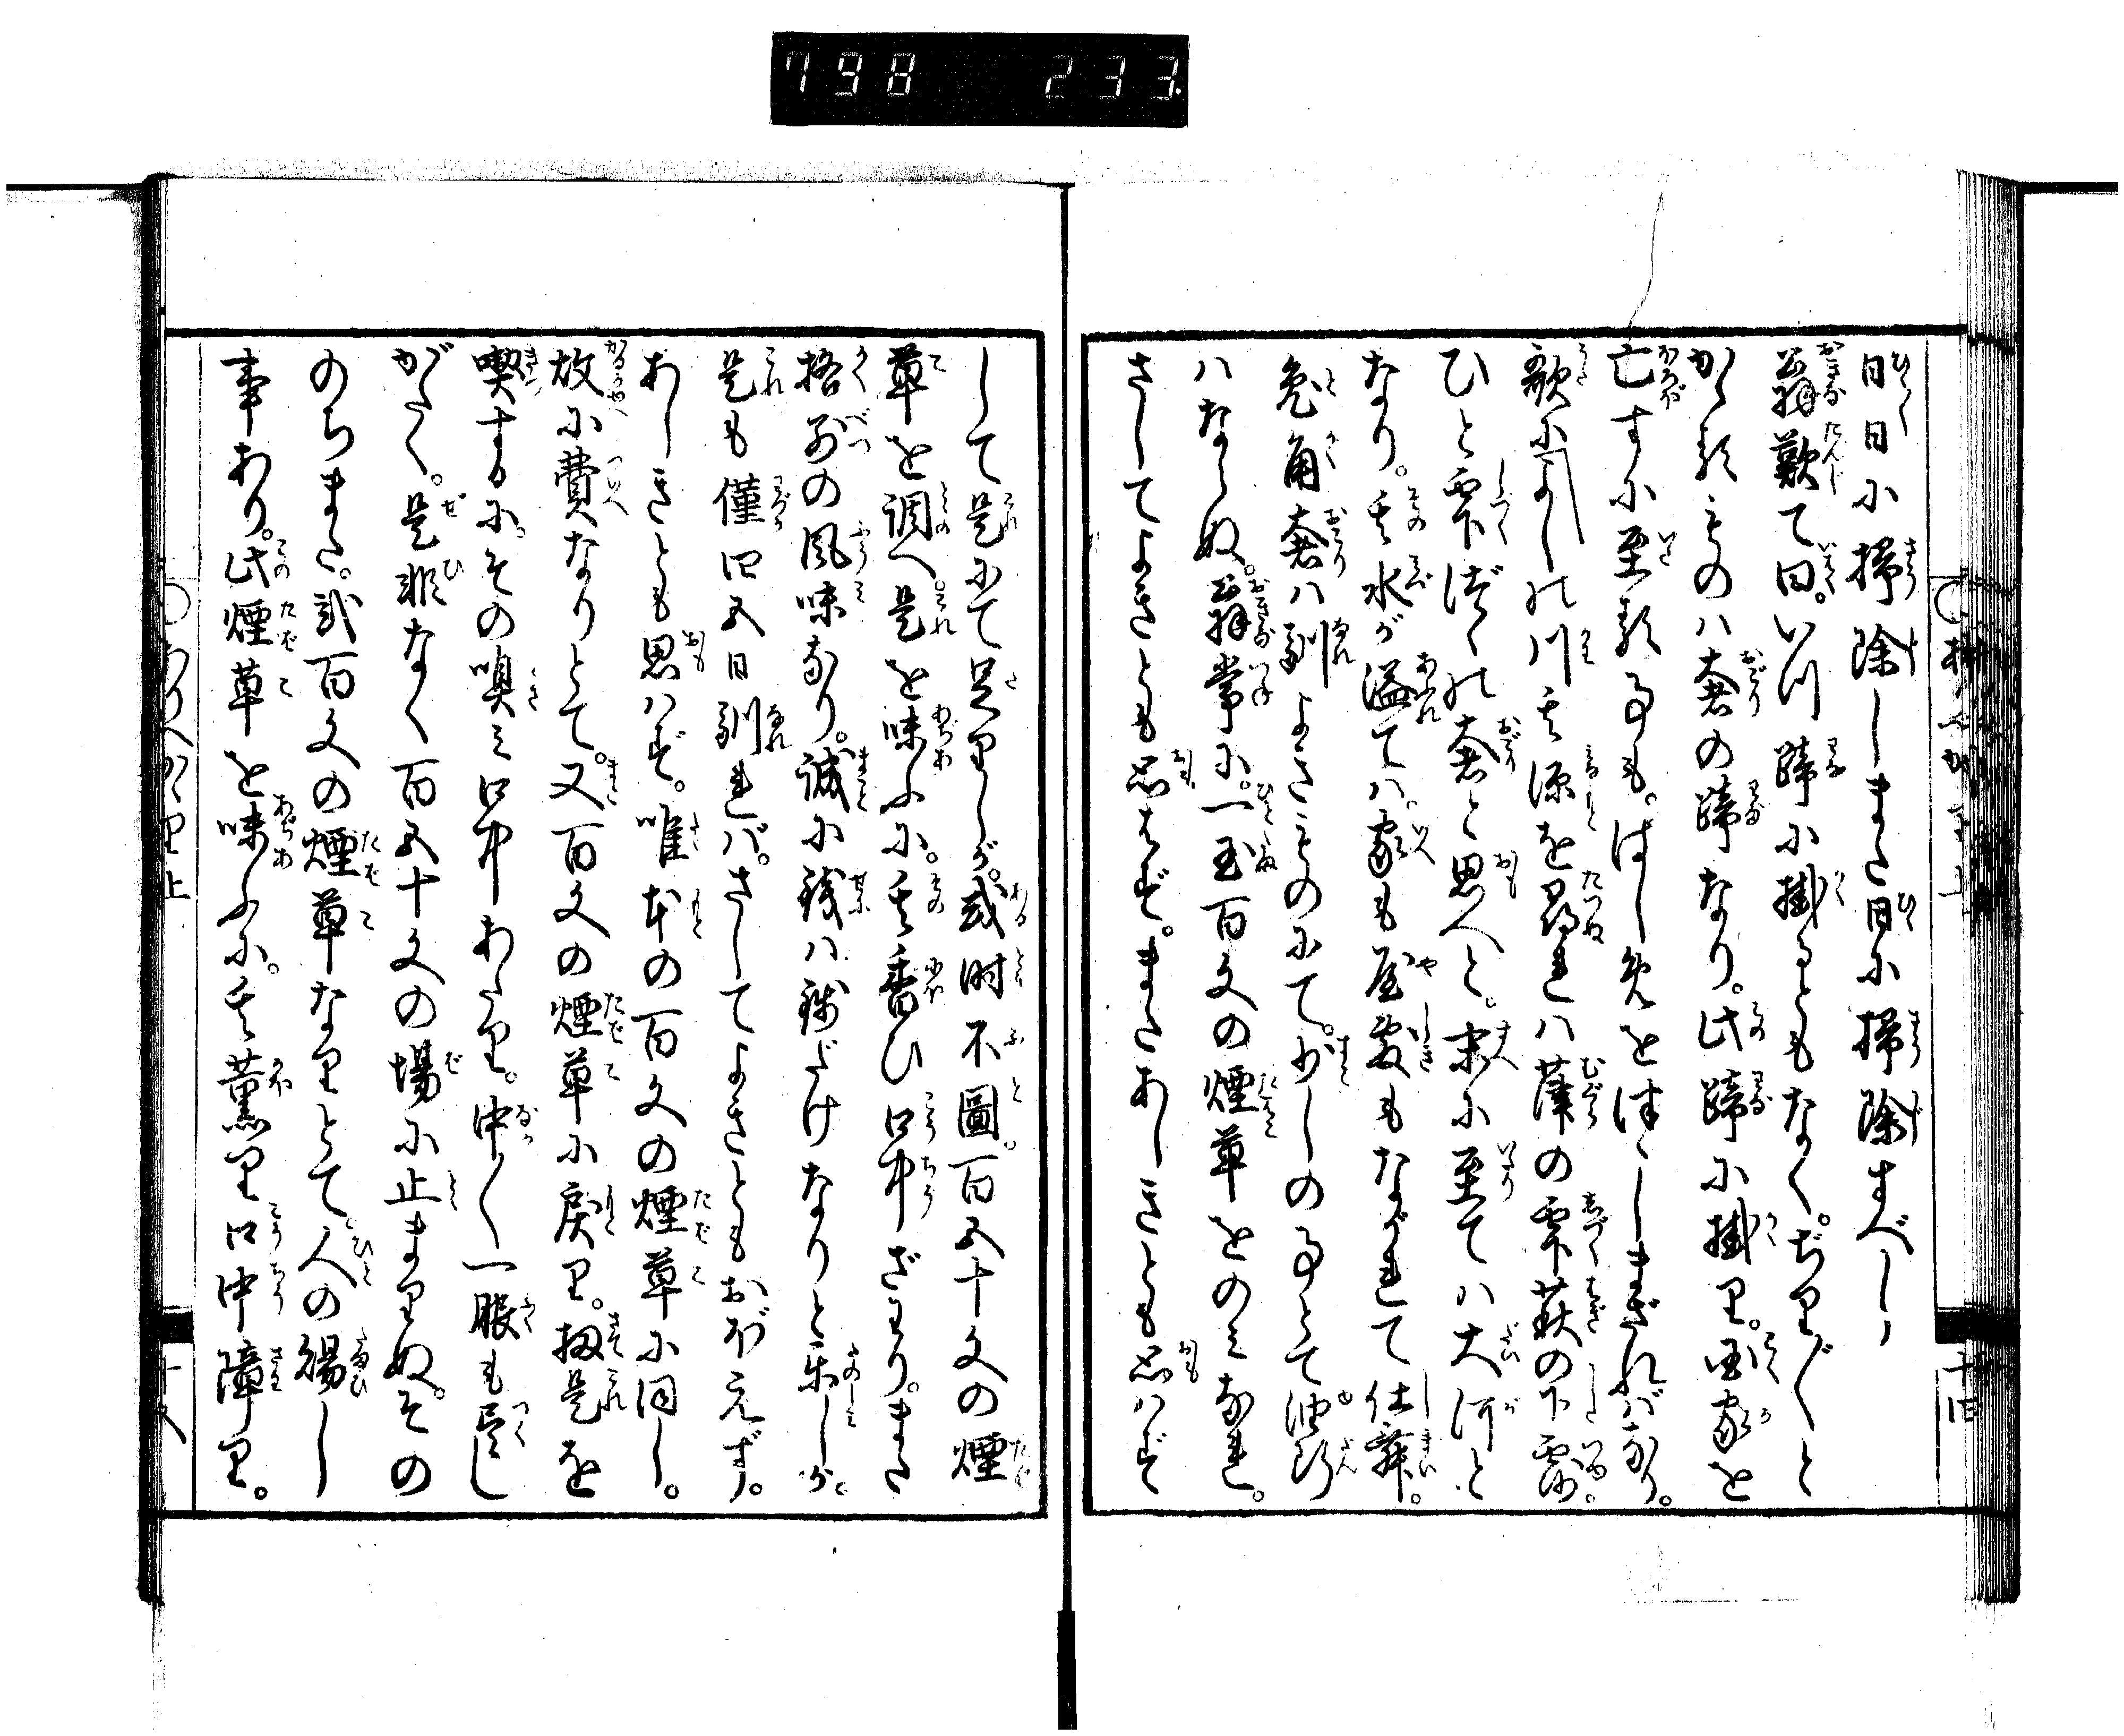 798 233
日日に掃除しまた日に掃除すべし
翁歎て曰。いつ蹄に掛るともなく。ぢり〴〵と
かゝるものハ奢の蹄なり。此蹄に掛り。国家を
亡すに至る事も。はし先をはしまざればなり。
歌によしの川其源を尋れハ葎の雫萩の下露。
ひと雫づゝの奢と思へと。末に至てハ大河と
なり。其水が溢てハ。家も屋敷もながれて仕舞。
兎角奢ハ馴よきものにて。少しの事とて油断
ハならぬ。翁常に。一玉百文の煙草をのみなれ。
さしてよきとも思はず。またあしきとも思ハず
して是にて足りしが。或時不図。百五十文の煙
草を調へ。是を味ふに。其香ひ口中ざわり。また
格別の風味なり。誠に銭ハ銭だけなりと楽しが。
是も僅四五日馴れバ。さしてよきともおぼえず。
あしきとも思ハず。唯本の百文の煙草に同し。
故に費なりとて。又百文の煙草に戻り。扨是を
喫するに。その嗅み口中あたり。中〳〵一服も尽し
がたく。是非なく百五十文の場に止まりぬ。その
のちまた。弐百文の煙草なりとて。人の賜し
事あり。此煙草を味ふに。其薫り口中障り。